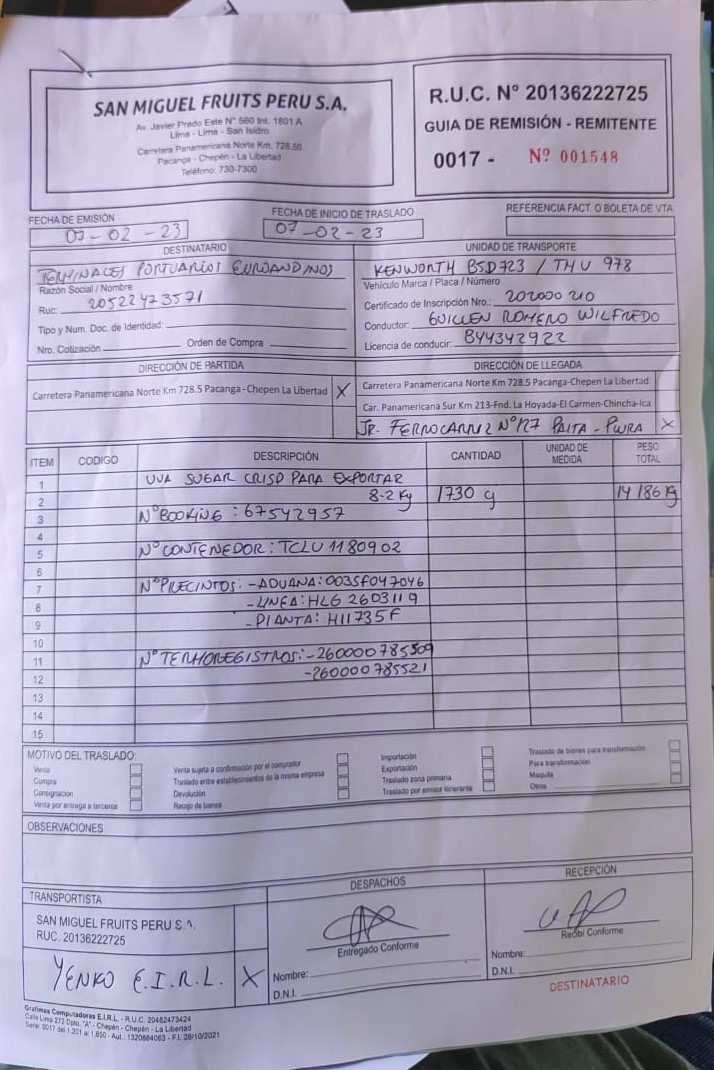 SAN MIGUEL FRUITS PERU S.A.
Av. Javier Prado Este N° 560 Int. 1601 A
Lima - Lima - San Isidro
Carretera Panamericana Norte Km. 728.50
Pacanga - Chepén - La Libertad
Teléfono: 730-7300
R.U.C. N° 20136222725
GUIA DE REMISIÓN - REMITENTE
0017 - Nº 001548
FECHA DE EMISIÓN
07-02-23
FECHA DE INICIO DE TRASLADO
07-02-23
REFERENCIA FACT. O BOLETA DE VTA
DESTINATARIO
TERMINALES PORTUARIOS EUROANDINOS
Razón Social / Nombre
Ruc: 20522473571
Tipo y Num. Doc. de Identidad:
Nro. Cotización Orden de Compra
UNIDAD DE TRANSPORTE
KENWORTH BSD723 / THU 978
Vehículo Marca / Placa / Número
Certificado de Inscripción Nro.: 202000 210
Conductor: GUILLEN ROMERO WILFREDO
Licencia de conducir: B44342922
DIRECCIÓN DE PARTIDA
Carretera Panamericana Norte Km 728.5 Pacanga-Chepen La Libertad X
DIRECCIÓN DE LLEGADA
Carretera Panamericana Norte Km 728.5 Pacanga-Chepen La Libertad
Car. Panamericana Sur Km 213-Fnd. La Hoyada-El Carmen-Chincha-Ica
JR. FERROCARRIL N°127 PAITA - PIURA X
ITEM CODIGO DESCRIPCIÓN CANTIDAD UNIDAD DE MEDIDA PESO TOTAL
1 UVA SUGAR CRISP PARA EXPORTAR
2 8-2 Kg 1730 g 14 186 Kg
3 N°BOOKING : 67542957
4
5 N°CONTENEDOR: TCLU 1180902
6
7 N°PRECINTOS: -ADUANA: 0035F047046
8 -LINEA: HLG 2603119
9 -PLANTA: H11735F
10
11 N° TERMOREGISTROS: -260000785509
12 -260000785521
13
14
15
MOTIVO DEL TRASLADO:
Venta
Compra
Consignación
Venta por entrega a terceros
Venta sujeta a confirmación por el comprador
Traslado entre establecimientos de la misma empresa
Devolución
Recojo de bienes
Importación
Exportación
Traslado zona primaria
Traslado por emisor itinerante
Traslado de bienes para transformación
Para transformación
Maquila
Otros
OBSERVACIONES
TRANSPORTISTA
SAN MIGUEL FRUITS PERU S.A.
RUC. 20136222725
YENKO E.I.R.L. X
DESPACHOS
Entregado Conforme
Nombre:
D.N.I.
RECEPCIÓN
Recibí Conforme
Nombre:
D.N.I.
DESTINATARIO
Grafimas Computadoras E.I.R.L. - R.U.C. 20482473424
Calle Lima 272 Dpto. "A" - Chepén - Chepén - La Libertad
Serie: 0017 del 1,201 al 1,650 - Aut.: 1320884063 - F.I. 28/10/2021